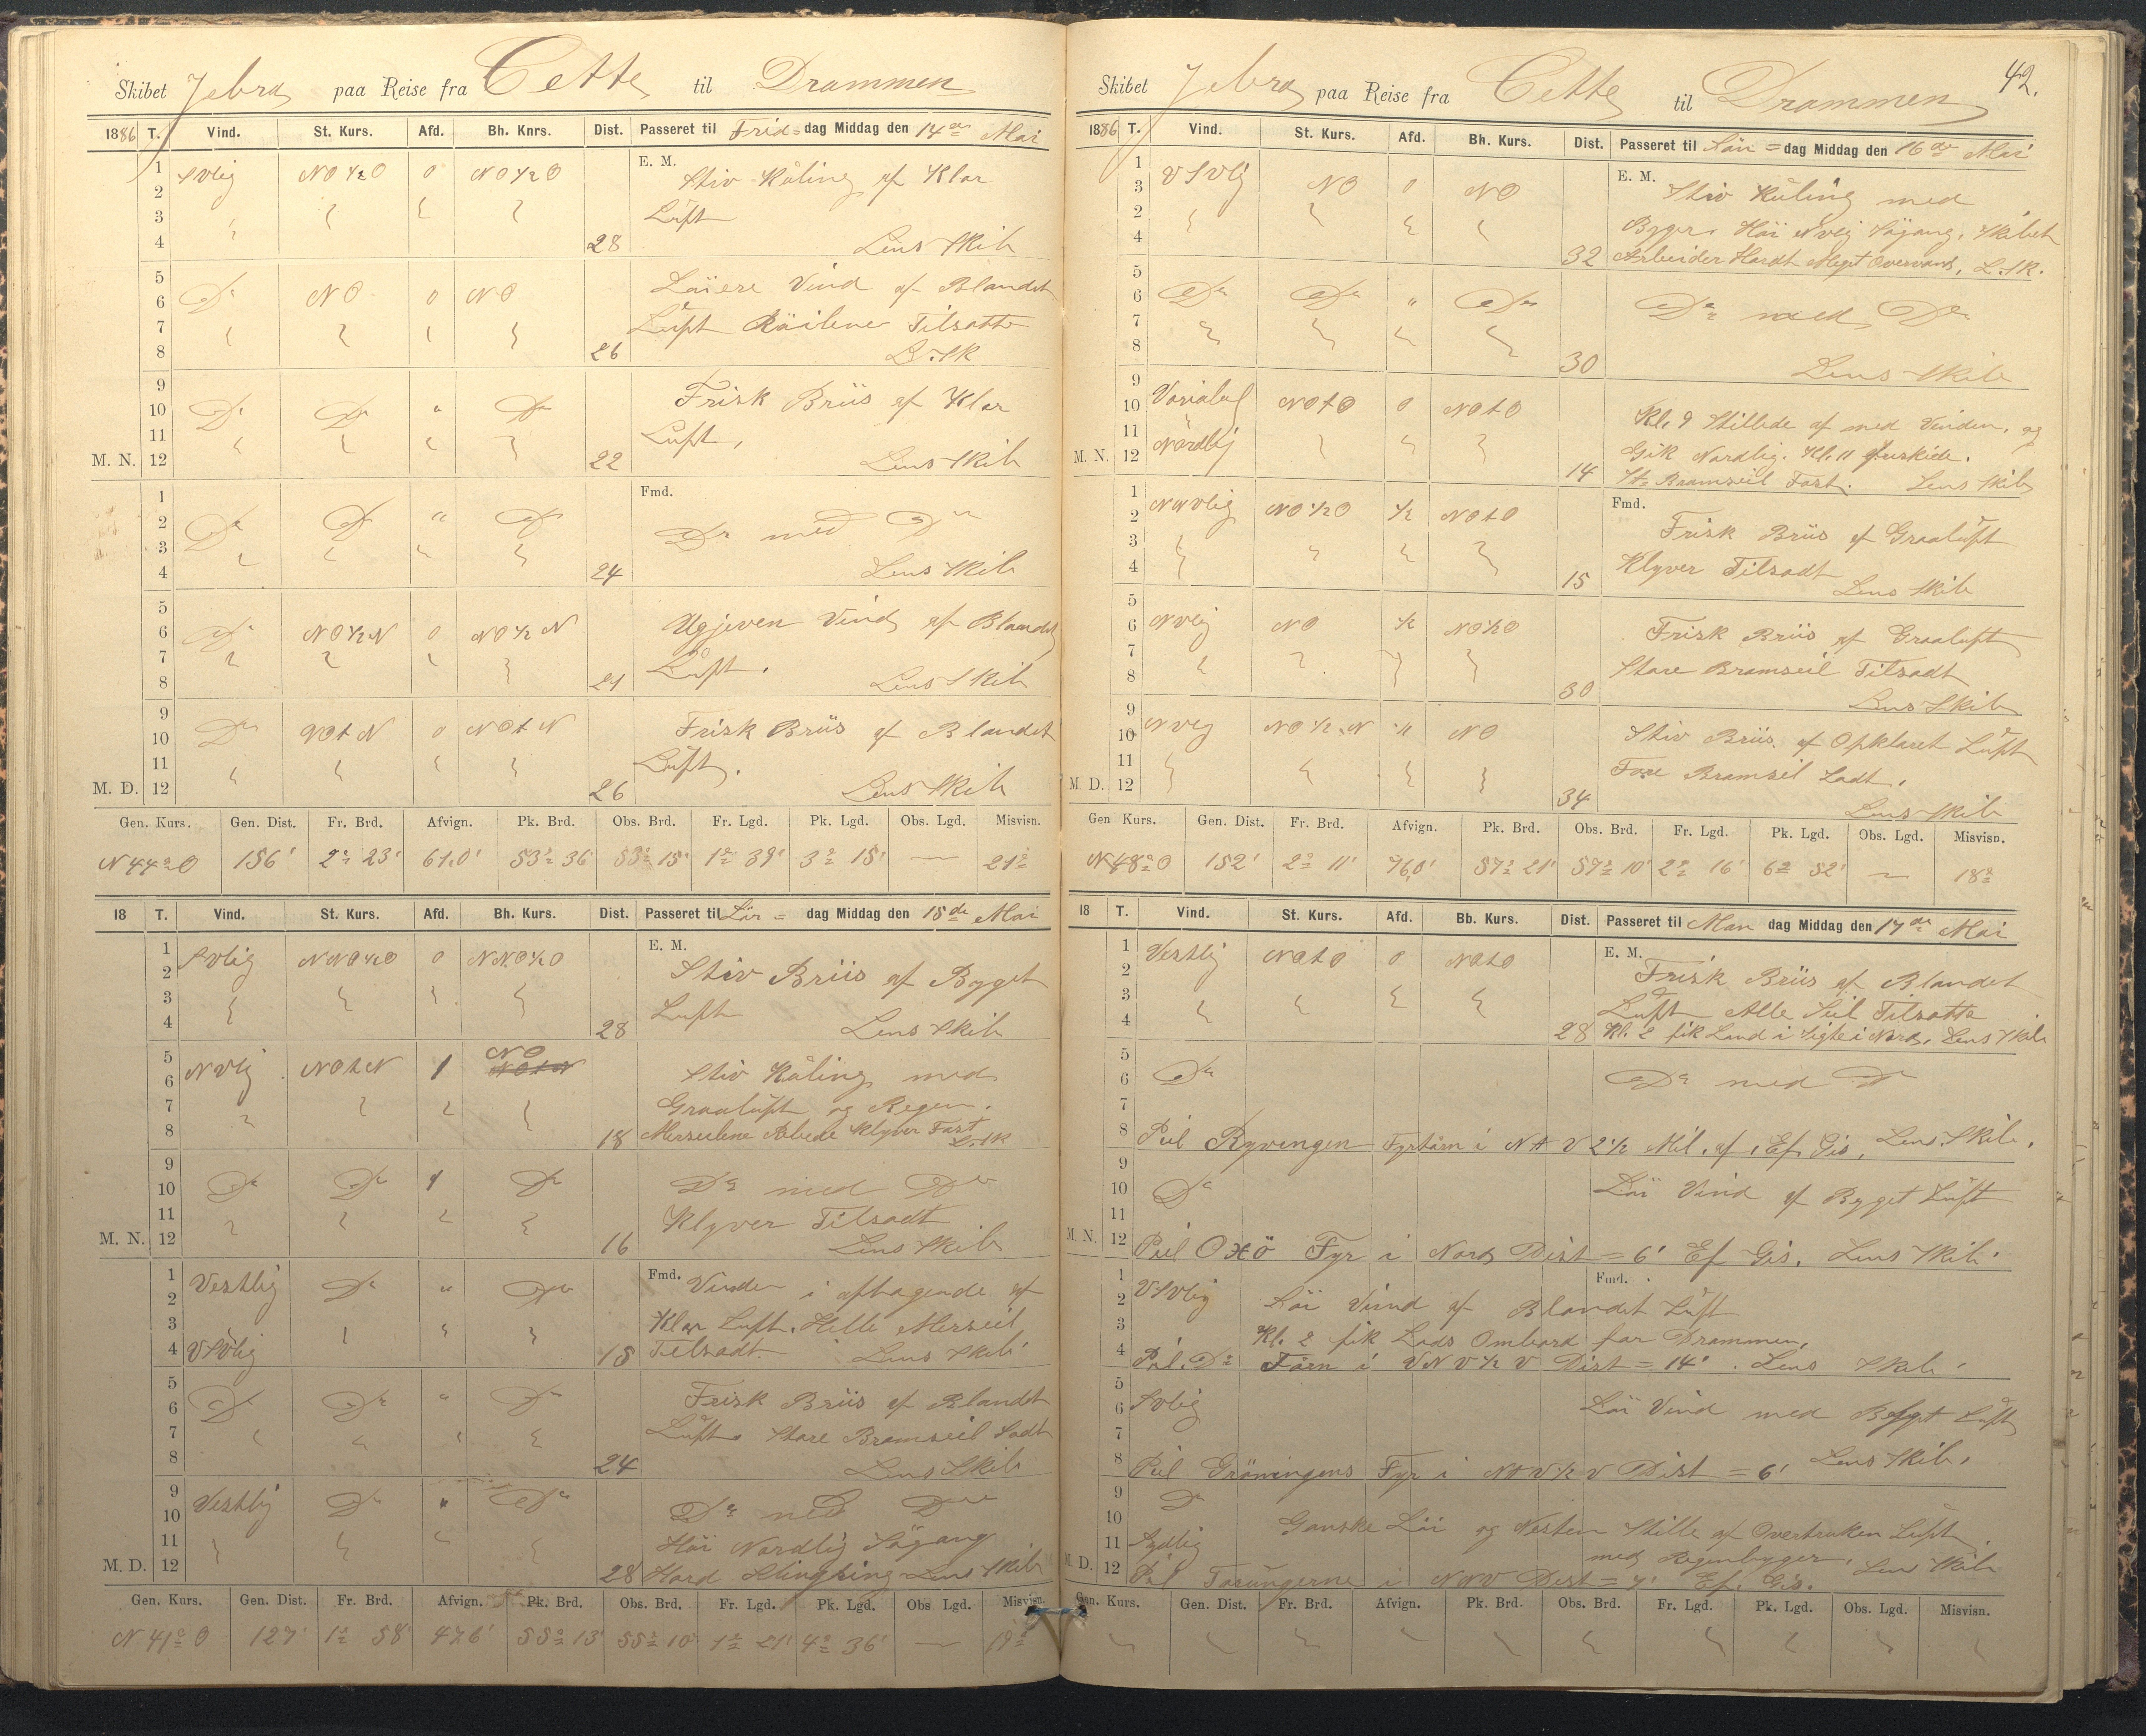 Skibet Zebra paa Reise fra Cette til Drammen
1886 T. Vind. St. Kurs. Afd. Bh. Knrs. Dist. Passeret til Frid= dag Middag den 14de Mai
E. M.
1 SVlig NO½O 0 NO½O Stiv Kuling af Klar
2
3 Luft
4 28 Lens Skib
5
6 Do NO 0 NO Löiere Vind af Blandet
7 Luft Röilene Tilsatte
8 26 L. Sk
9
10 Do Do " Do Frisk Briis af Klar
11 Luft,
M. N. 12 22 Lens Skib
1 Fmd.
2 Do Do " Do Do med Do
3
4 24 Lens Skib
5
6 Do NO½N 0 NO½N Ugjeven Vind af Blandet
7 Luft.
8 21 Lens Skib
9
10 Do NOtN 0 NOtN Frisk Briis af Blandet
11 Luft.
M. D. 12 26 Lens Skib
Gen. Kurs. Gen. Dist. Fr. Brd. Afvign. Pk. Brd. Obs. Brd. Fr. Lgd. Pk. Lgd. Obs. Lgd. Misvisn.
N 44° O 156' 2° 23' 61,0' 53° 36' 53° 15' 1° 39' 3° 15' — 21°
18 T. Vind. St. Kurs. Afd. Bh. Kurs. Dist. Passeret til Lör= dag Middag den 15de Mai
E. M.
1 SVlig NNO½O 0 NNO½O
2 Stiv Briis af Byget
3 Luft
4 28 Lens Skib
5 NO
6 NVlig NOtN 1 NOtN Stiv Kuling med
7 Graaluft og Regen.
8 18 Merseilene Rebede Klyver Fast L. Sk
9
10 Do Do 1 Do Do med Do
11 Klyver Tilsadt
M. N. 12 16 Lens Skib
1 Vestlig Do " Do Fmd. Vinden i aftagende af
2
3 Klar Luft. Helle Merseil
4 VSVlig 18 Tilsadt. Lens Skib
5
6 Do Do " Do Frisk Briis af Blandet
7 Luft. Store Bramseil Sadt
8 24 Lens Skib
9 Vestlig Do " Do Do med Do
10
11 Höi Nordlig Sögang
M. D. 12 28 Hard Slingring Lens Skib
Gen. Kurs. Gen. Dist. Fr. Brd. Afvign. Pk. Brd. Obs. Brd. Fr. Lgd. Pk. Lgd. Obs Lgd. Misvisn.
N 41° O 127' 1° 58' 47,6' 55° 13' 55° 10' 1° 21' 4° 36' — 19°
42.
Skibet Zebra paa Reise fra Cette til Drammen
1886 T. Vind. St. Kurs. Afd. Bh. Kurs. Dist. Passeret til Sön= dag Middag den 16de Mai
E. M.
1 VSVlig NO 0 NO Stiv Kuling med
3
2 Byger. Höi NVlig Sögang. Skibet
4 32 Arbeider Hardt Meget Overvand, L. Sk.
5
6 Do Do " Do Do med Do
7
8 30 Lens Skib
9 Variabel
10 NOtO 0 NOtO Kl. 9 Stillede af med Vinden, og
11 Nordlig Gik Nordlig. Kl. 11
M. N. 12 14 St. Bramseil Fast. Lens Skib
1 Fmd.
2 NNVlig NO½O ½ NOtO Frisk Briis af Graaluft
3
4 15 Klyver Tilsadt Lens Skib
5
6 NVlig NO ½ NO½O Frisk Briis af Graaluft
7 Store Bramseil Tilsadt
8 30 Lens Skib
9
10 NVlig NO½N ½ NO Stiv Briis af Opklaret Luft
11 Fore Bramseil Sadt.
M. D. 12 34 Lens Skib
Gen Kurs. Gen. Dist. Fr. Brd. Afvign. Pk. Brd. Obs. Brd. Fr. Lgd. Pk. Lgd. Obs. Lgd. Misvisn.
N 48° O 152' 2° 11' 76,0' 57° 21' 57° 10' 2° 16' 6° 52' — 18°
18 T. Vind. St. Kurs. Afd. Bb. Kurs. Dist. Passeret til Man dag Middag den 17de Mai
E. M.
1 Vestlig NOtO 0 NOtO Frisk Briis af Blandet
2
3 Luft Alle Seil Tilsatte
4 28 Kl. 2 fik Land i Sigte i Nord. Lens Skib
5
6 Do Do med Do
7
8 Peil Ryvingen Fyrtårn i NtV 2½ Mil. af. Ef. Gis. Lens Skib.
9
10 Do Löi Vind af Byget Luft
11
M. N. 12 Peil Oxö Fyr i Nord Dist = 6' Ef Gis. Lens Skib.
1 Fmd.
2 VSVlig Löi Vind af Blandet Luft
3 Kl. 2 fik Lods Ombord for Drammen.
4 Peil. Do Tårn i VNV½V Dist = 14'. Lens Skib.
5
6 SVlig Löi Vind med Bÿget Luft
7
8 Peil Gröningens Fyr i NtV½V Dist = 6' Lens Skib.
9 Do
10 Ganske Löi og Nesten Stille af Overtruken Luft
11 Sydlig med Regenbyger. Lens Skib
M. D. 12 Peil Torungerne i NNV Dist = 7' Ef. Gis.
Gen. Kurs. Gen. Dist. Fr. Brd. Afvign. Pk. Brd. Obs. Brd. Fr. Lgd. Pk. Lgd. Obs. Lgd. Misvisn.